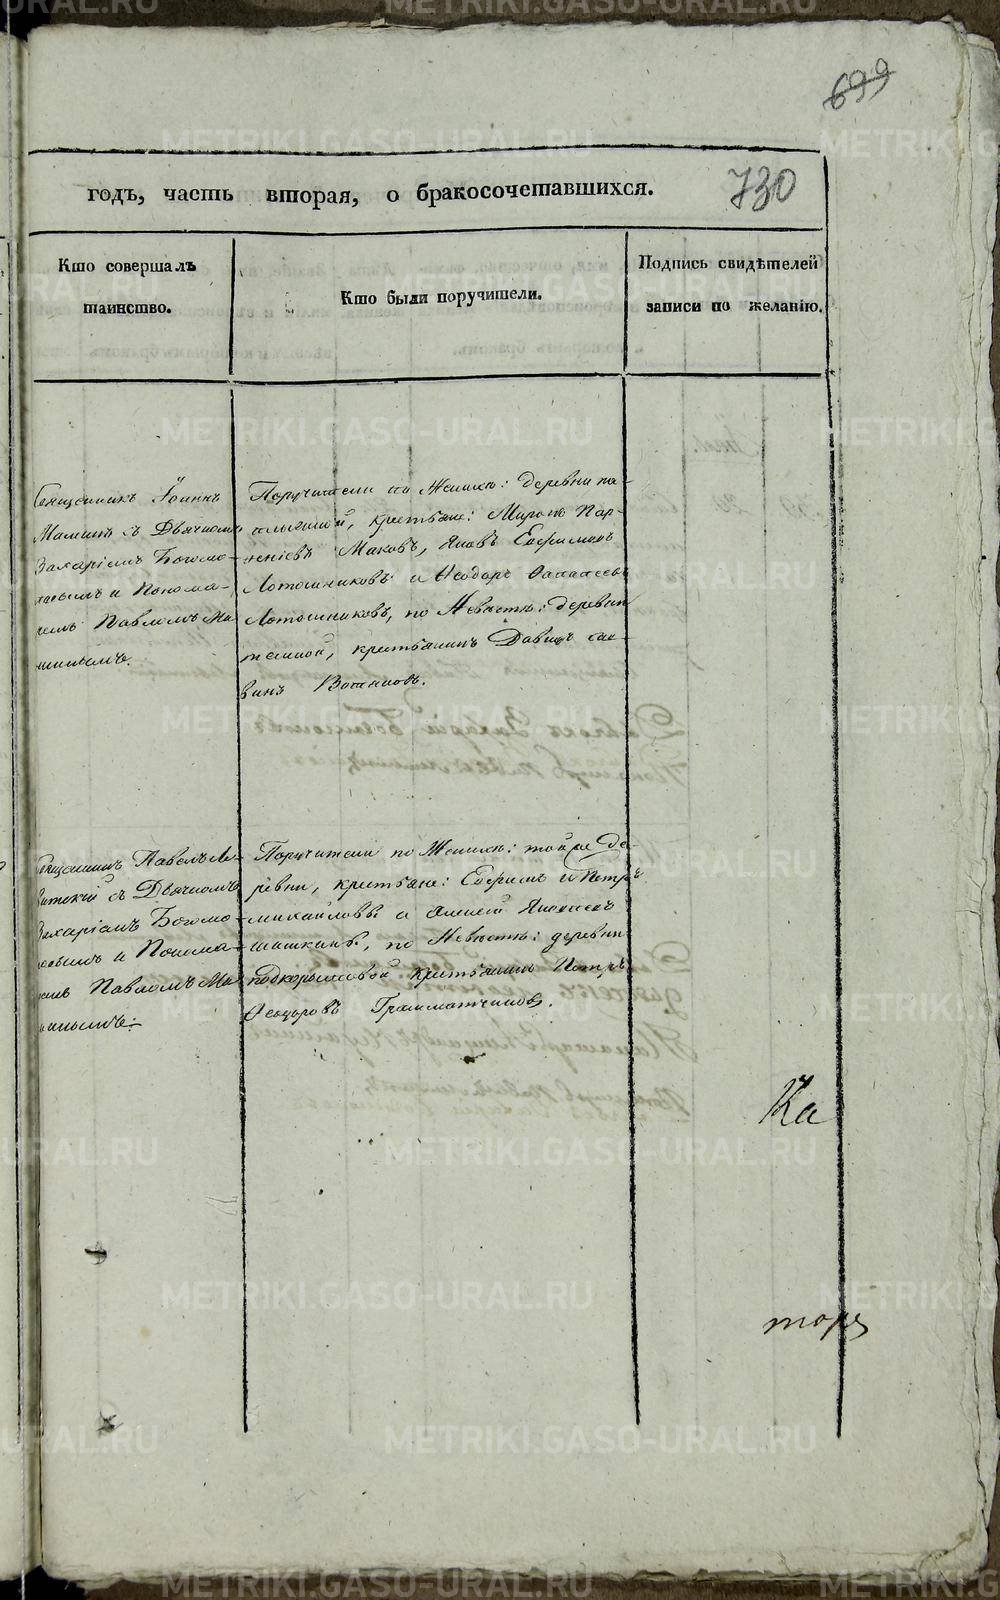 699
730
годъ, часть вторая, о бракосочетавшихся.
Кто совершалъ
таинство.
Кто были поручители.
Подпись свидѣтелей
записи по желанію.
Священникъ Іоаннъ
Маминъ съ Дьячкомъ
Захаріемъ Богомо-
ловымъ и Понома-
ремъ Павломъ Ма
минымъ.
Поручители по Женихѣ: деревни
крестьяне: Миронъ Пар-
Маковъ, Яковъ Ефимовъ
Лотошниковъ и Ѳеодоръ
Лотошниковъ, по Невѣстѣ: деревни
крестьянинъ Давидъ Сав-
винъ
Священникъ Павелъ Ле-
витскій съ Дьячкомъ
Захаріемъ Богомо-
ловымъ и Понома-
ремъ Павломъ Ма
минымъ:
Поручители по Женихѣ: той же де-
ревни, крестьяне: Ефимъ и Петръ
Михайловы и Алексей
по Невѣстѣ: деревни
крестьянинъ Петръ
Ѳеодоровъ Грамматчиковъ.
Ка
торъ
METRIKI.GASO-URAL.RU